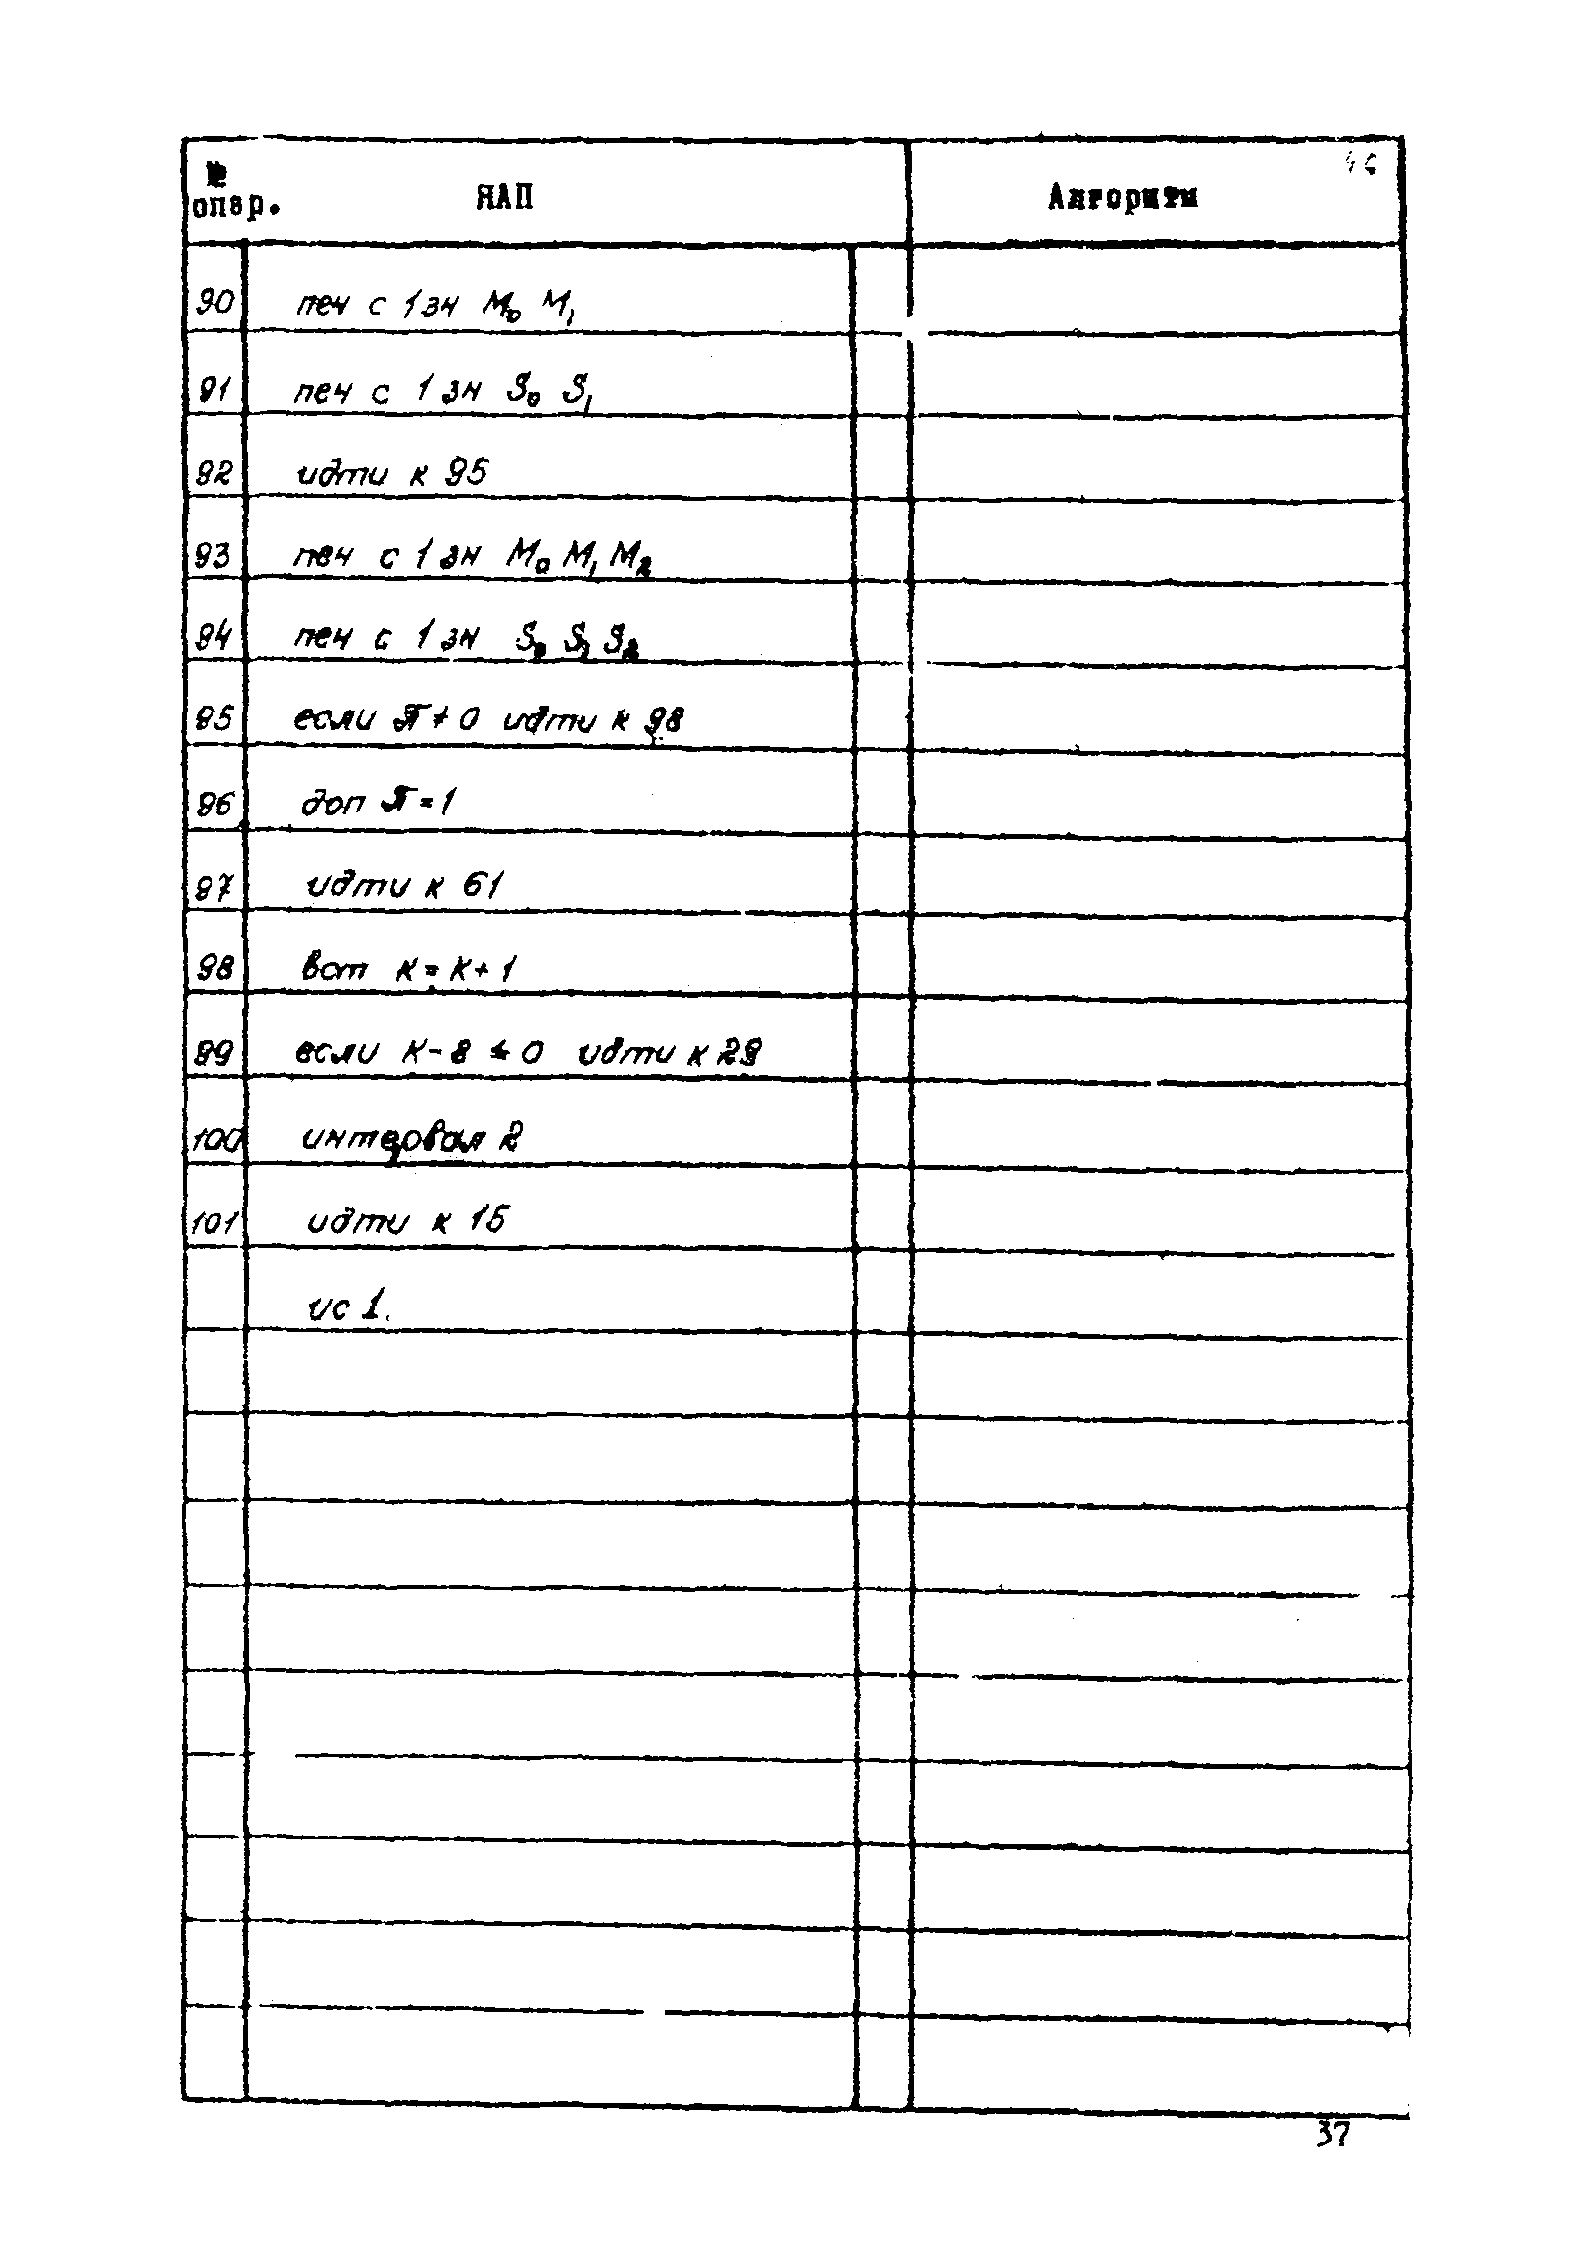 46
№ опер. ЯАП Алгоритм
90 печ с 1 зн M₀ M₁
91 печ с 1 зн S₀ S₁
92 идти к 95
93 печ с 1 зн M₀ M₁ M₂
94 печ с 1 зн S₀ S₁ S₂
95 если π≠0 идти к 98
96 доп π=1
97 идти к 61
98 вст к=к+1
99 если к-8≤0 идти к 29
100 интервал 2
101 идти к 15
ис 1.
37